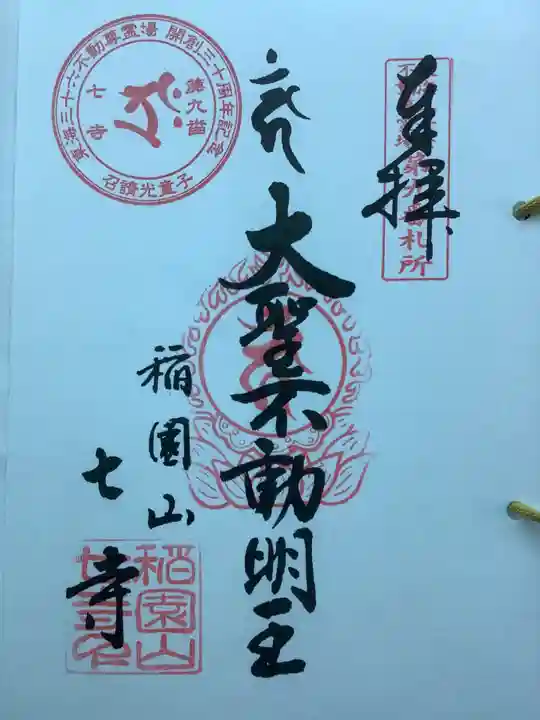 奉拝
第九番札所
大聖不動明王
稲園山
七寺
東海三十六不動尊霊場 開創三十周年記念
第九番
七寺
召請光童子
稲園山
七寺